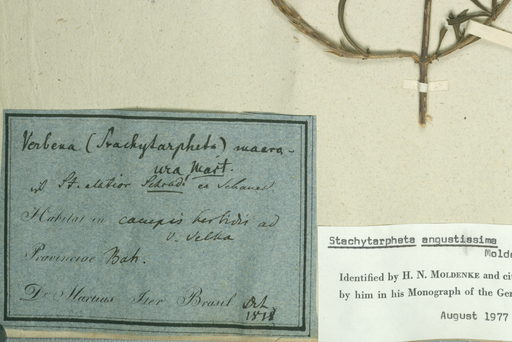 Verbena (Stachytarpheta) macra-
ura Mart.
est St. elatior Schrad. ex Schauer
Habitat in campis herbidis ad
V. Velha
Provinciae Bah.
Dr Martius Iter Brasil Oct.
1818
Stachytarpheta angustissima
Molde
Identified by H. N. MOLDENKE and cit
by him in his Monograph of the Gen
August 1977